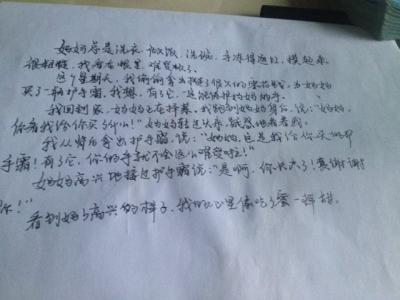 妈妈总是洗衣、做饭、洗碗,手冻得通红,摸起来
很粗糙,我看在眼里,难受极了。
这个星期天,我偷偷拿出攒了很久的零花钱,为妈妈
买了一瓶护手霜,我想,有了它,一定能保护妈妈的手。
我回到家,妈妈正在择菜,我跑到妈妈身后,说:“妈妈,
你看我给你买什么!”妈妈转过头来,疑惑地看着我。
我从背后拿出护手霜,说:“妈妈,这是我给你买的护
手霜!有了它,你的手就不会这么难受啦!”
妈妈高兴地接过护手霜说:“是啊,你长大了!要谢谢
你!”
看到妈妈高兴的样子,我的心里像吃了蜜一样甜。